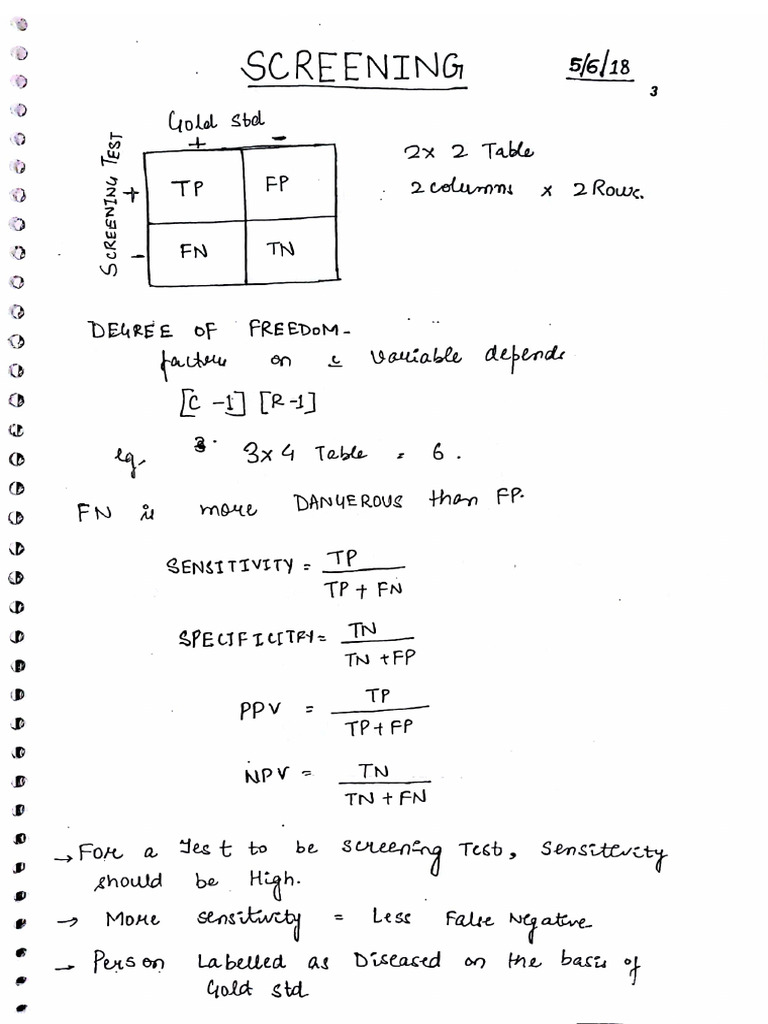 SCREENING
5/6/18
3
Gold Std
+ -
SCREENING TEST
+ TP FP
- FN TN
2x 2 Table
2 columns x 2 Rows.
DEGREE OF FREEDOM-
factors on c̲ variable depends
[C -1] [R -1]
eg. 3x4 Table = 6.
FN is more DANGEROUS than FP.
SENSITIVITY = TP
TP + FN
SPECIFICITRY= TN
TN +FP
PPV = TP
TP+ FP
NPV = TN
TN + FN
→For a Test to be screening Test, Sensitevity
should be High.
→ More sensitivity = Less False Negative
→ Person Labelled as Diseased on the basis of
Gold Std